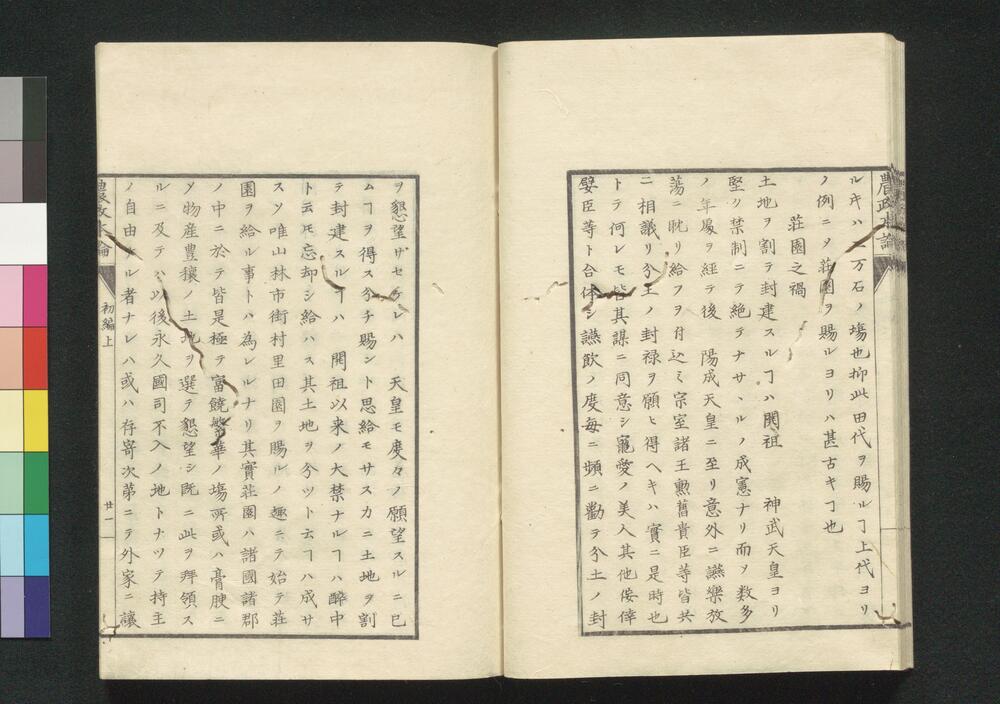 ルキハ一二万石ノ場也抑此田代ヲ賜ルヿ上代ヨリ
ノ例ニメ荘園ヲ賜ルヨリハ甚古キヿ也
荘園之禍
土地ヲ割テ封建スルヿハ開祖 神武天皇ヨリ
堅ク禁制ニテ絶テナサヽルノ成憲ナリ而ヲ数多
ノ年慶ヲ経テ後 陽成天皇ニ至リ意外ニ讌樂放
蕩ニ耽リ給フヲ付込ミ宗室諸王勲舊貴臣等皆共
ニ相議リ分土ノ封禄ヲ願ヒ得ヘキハ實ニ是時也
トテ何レモ皆其謀ニ同意シ寵愛ノ美人其他倭倖
嬖臣等ト合体シ讌飲ノ度毎ニ頻ニ勸テ分土ノ封
ヲ懇望サセケレハ 天皇モ度々ノ願望スルニ已
ムヿヲ得ス分チ賜ント思給モサスカニ土地ヲ割
テ封建スルヿハ 開祖以来ノ大禁ナルヿハ醉中
ト云モ忘却シ給ハス其土地ヲ分ツト云ヿハ成サ
スソ唯山林市街村里田園ヲ賜ルノ趣ニテ始テ荘
園ヲ給ル事トハ為レルナリ其實荘園ハ諸國諸郡
ノ中ニ於テ皆是極テ富饒繁華ノ場所或ハ膏腴ニ
ソ物産豊穣ノ土地ヲ選テ懇望シ既ニ此ヲ拜領ス
ルニ及テハ以後永久國司不入ノ地トナツテ持主
ノ自由ナル者ナレハ或ハ存寄次第ニテ外家ニ讓
農政本論
初編上
廿一